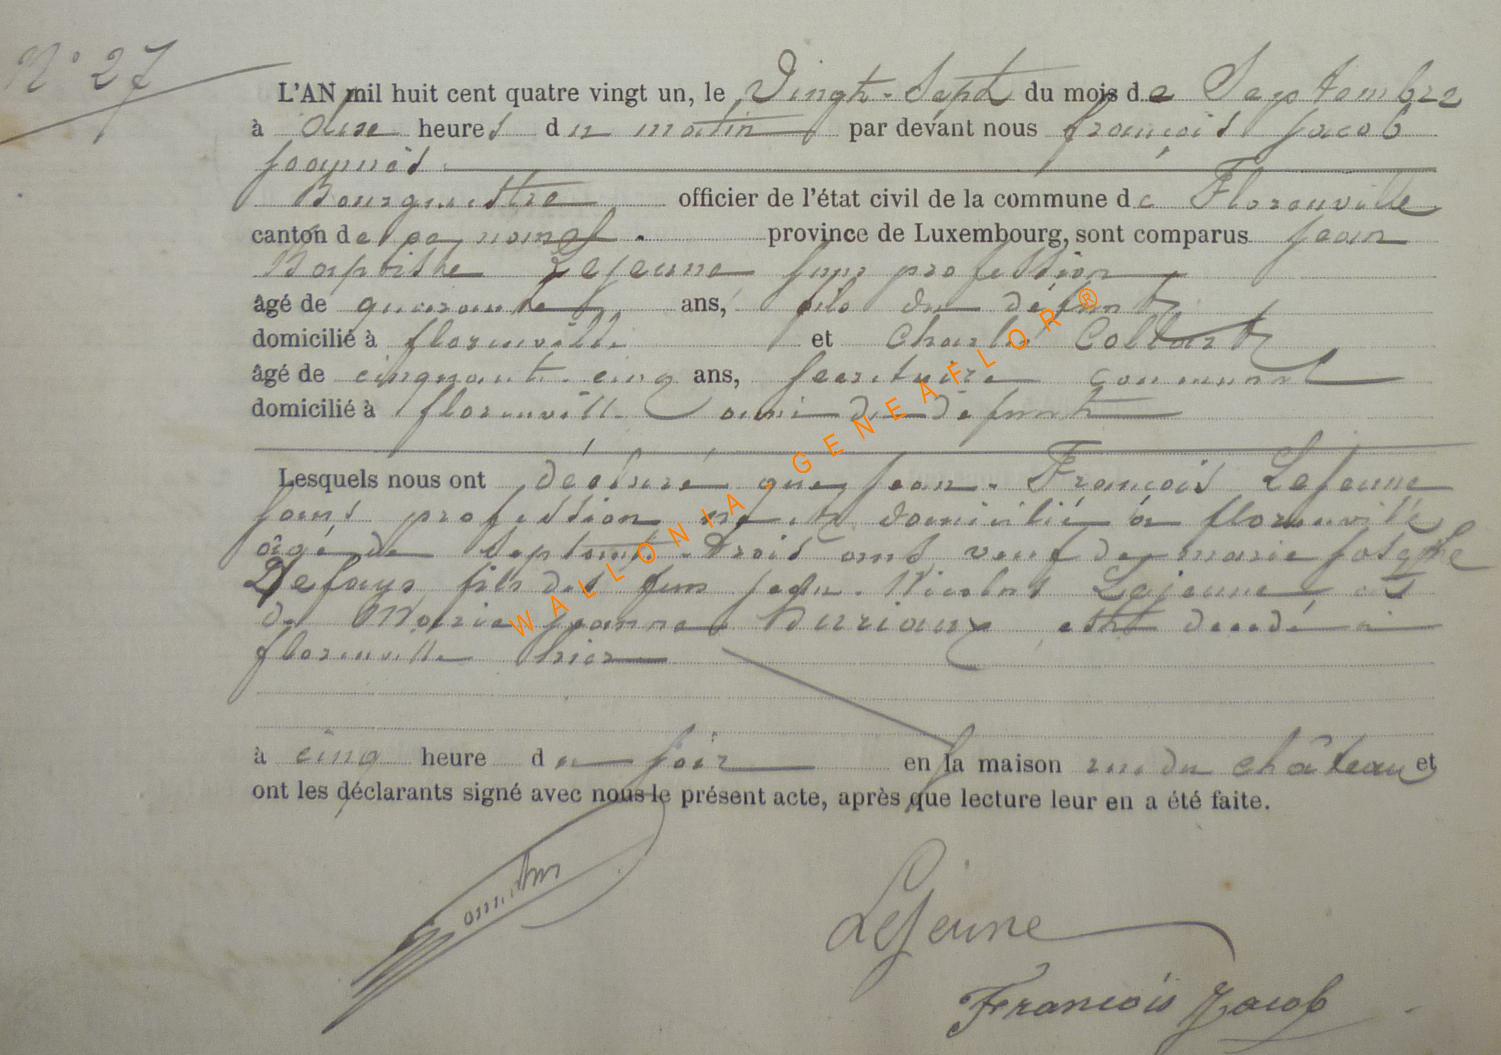 N° 27
L'AN mil huit cent quatre vingt un, le Vingt-Sept du mois de Septembre
à heures du matin par devant nous françois Jacob
Joannés
Bourgmestre officier de l'état civil de la commune de Florenville
canton de province de Luxembourg, sont comparus Jean
Baptiste Lejeune sans profession
âgé de quarante ans, fils du défunt
domicilié à florenville et Charles Collart
âgé de cinquante-cinq ans, secrétaire communal
domicilié à florenville ami du défunt
Lesquels nous ont déclaré que Jean-François Lejeune
sans profession né et domicilié à florenville
âgé de septante-trois ans, veuf de marie Josèphe
Defays fils des feus Jean-Nicolas Lejeune et
de Marie Jeanne Duriaux est décédé à
florenville hier
à cinq heure du soir en la maison rue du château et
ont les déclarants signé avec nous le présent acte, après que lecture leur en a été faite.
LeJeune
François Jacob
WALLONIA-GENEAFLOR®